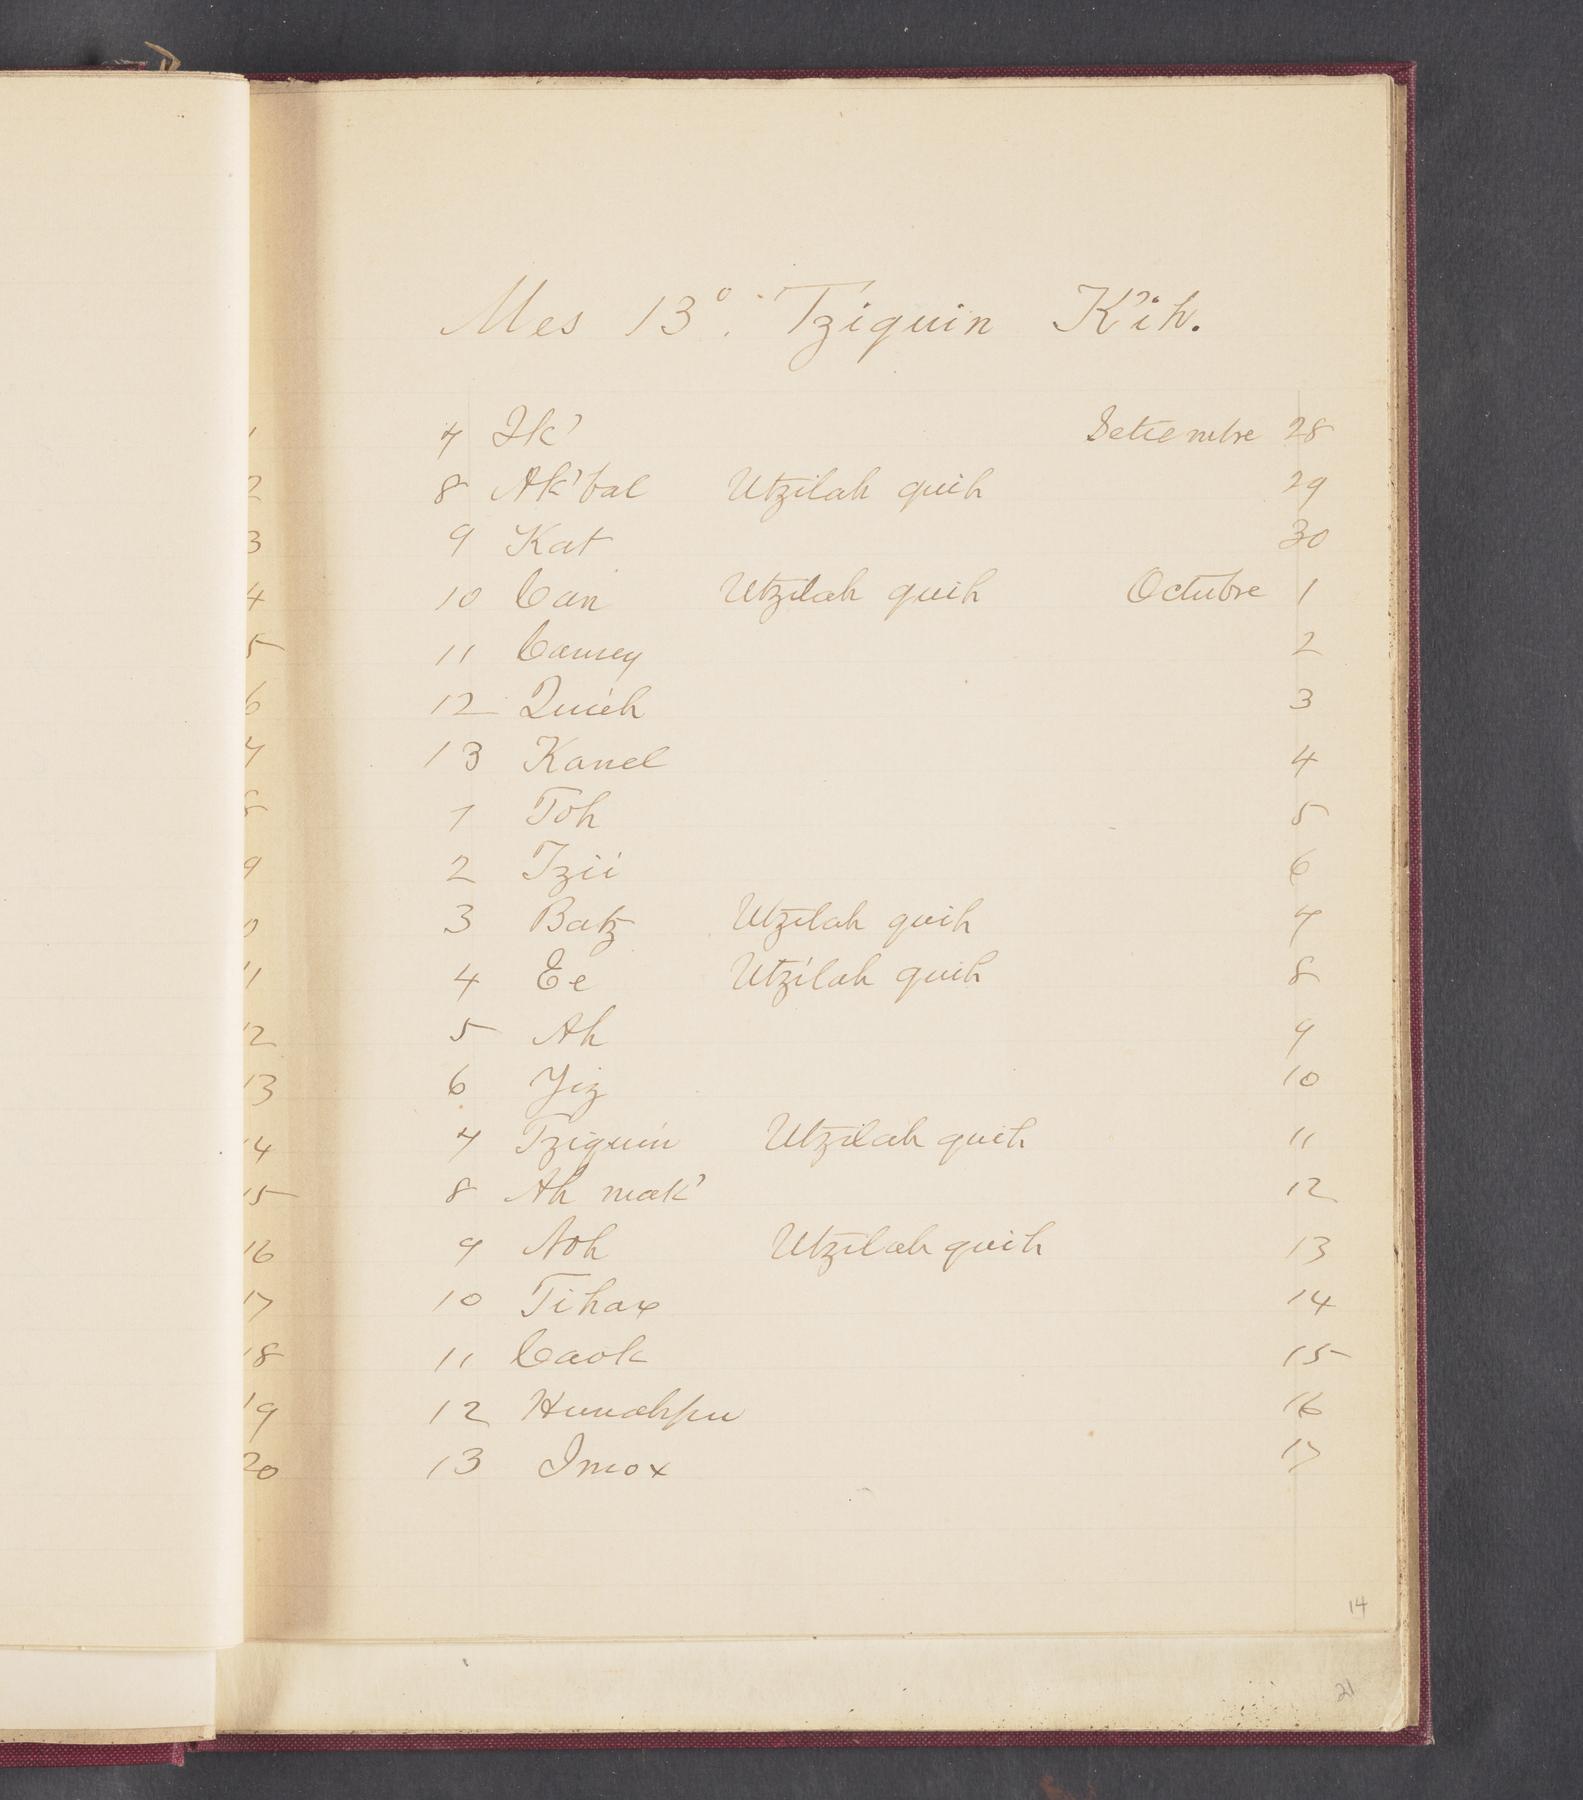 Mes 13º. Tziquin K'ih.
1 7 Ik' Setiembre 28
2 8 Ak'bal Utzilah quih 29
3 9 Kat 30
4 10 Can Utzilah quih Octubre 1
5 11 Camey 2
6 12 Quieh 3
7 13 Kanel 4
8 1 Toh 5
9 2 Tzii 6
0 3 Batz Utzilah quih 7
11 4 Ee Utzilah quih 8
12 5 Ah 9
13 6 Yiz 10
14 7 Tziquin Utzilah quih 11
15 8 Ah mak' 12
16 9 Noh Utzilah quih 13
17 10 Tihax 14
18 11 Caok 15
19 12 Hunahpu 16
20 13 Imox 17
14
21